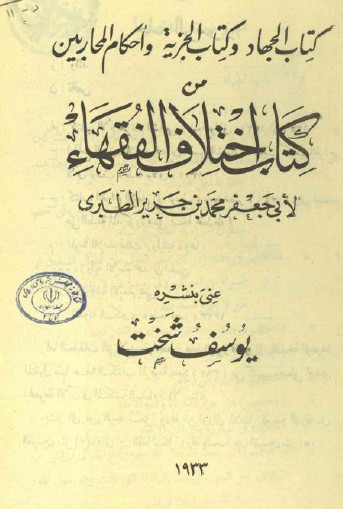 كتاب الجهاد وكتاب الجزية وأحكام المحاربين
من
كتاب اختلاف الفقهاء
لأبي جعفر محمد بن جرير الطبرى
عنى بنشره
يوسف شخت
١٩٣٣